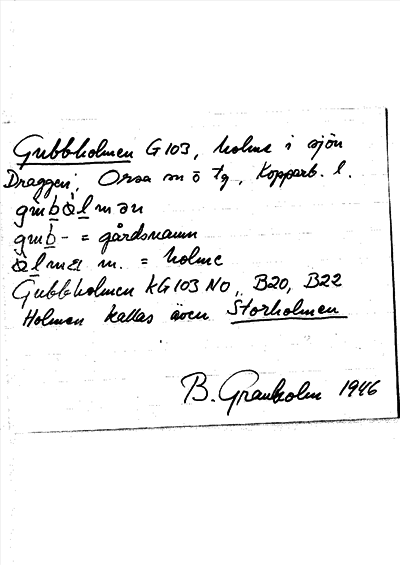 Gubbholmen G 103, holme i sjön
Draggen, Orsa sn ö tg, Kopparb. l.
gubb- = gårdsnamn
m. = holme
Gubbholmen KG 103 NO, B20, B22
Holmen kallas även Storholmen
B. Granholm 1946